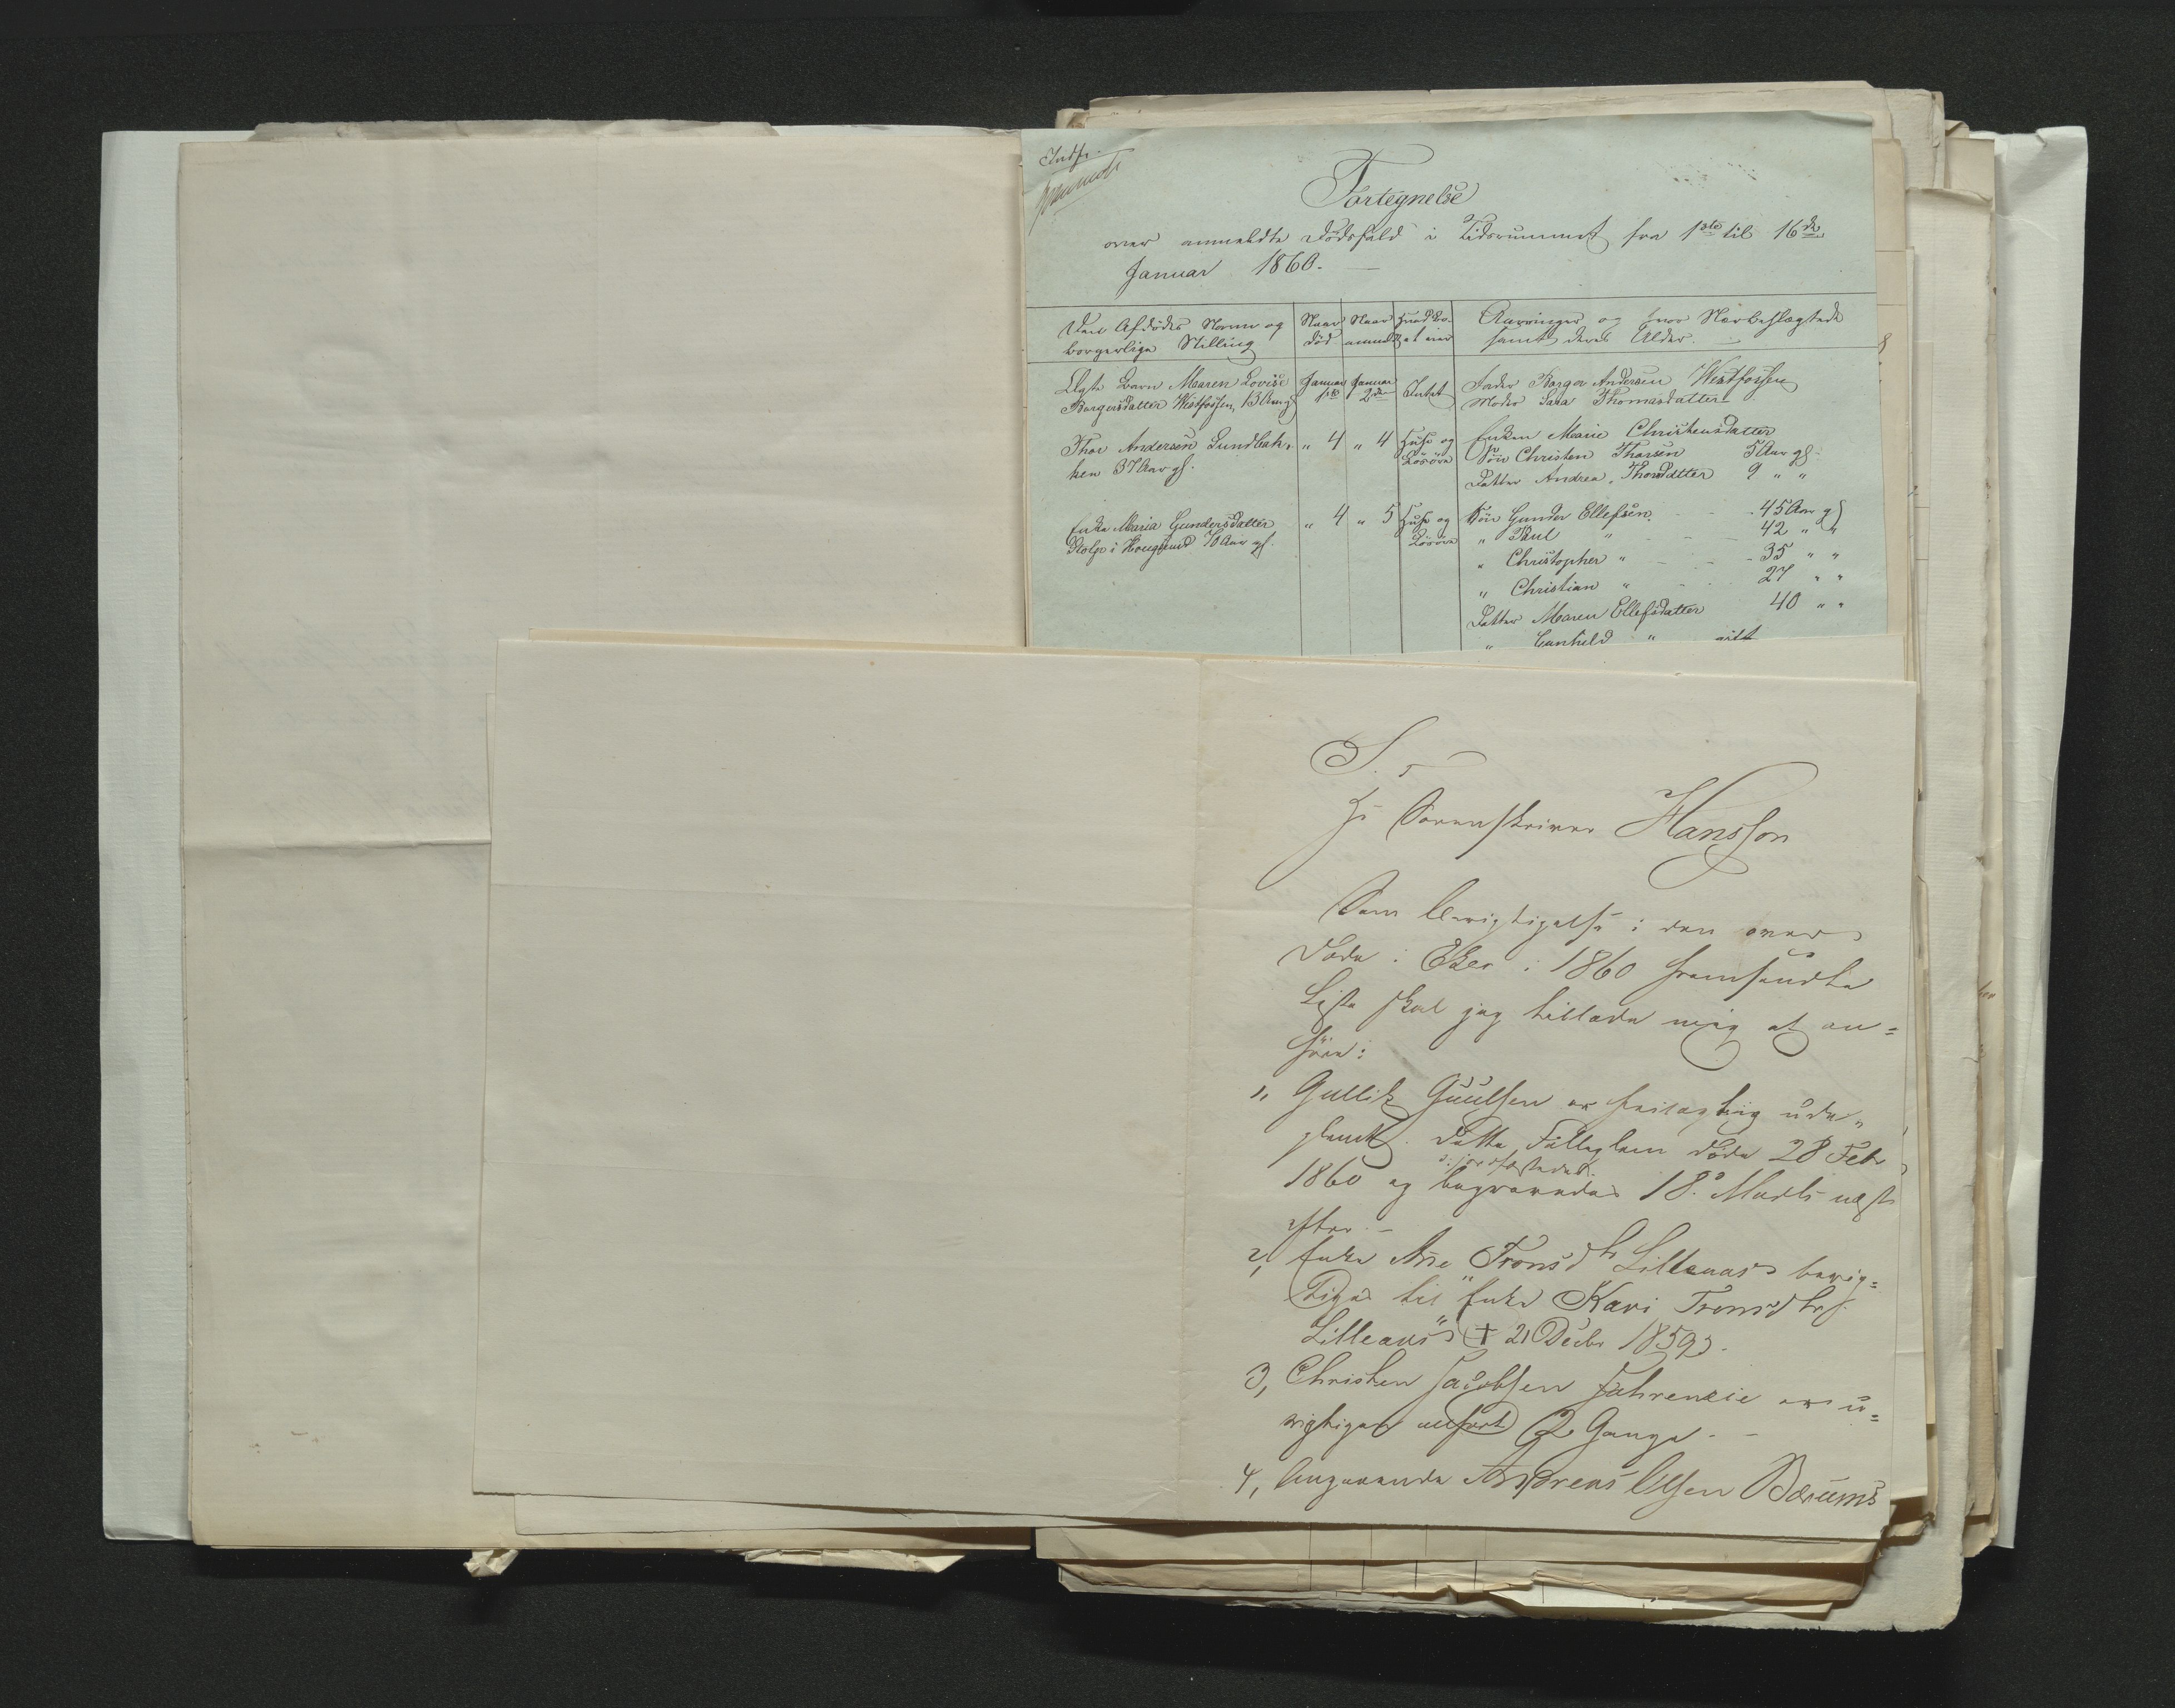 Indf.
Fortegnelse
over anmeldte Dödsfald i Tidsrummet fra 1ste til 16de
Januar 1860.
Den Afdödes Navn og
borgerlige Stilling
Naar
död
Naar
anmeldt
Arvinger og Nærbeslægtede
samt deres Alder.
Ægte Barn Maren Lovise
Borgersdatter Westfossen, 13 Aar gl
Januar
1ste
Januar
2den
Intet
Fader Borger Andersen Westfossen
Moder Sara Thomasdatter
Thor Andersen Lundbak-
ken 37 Aar gl.
" 4 " 4
Huse og
Lösöre
Enken Marie Christensdatter
Sön Christen Thorsen 5 Aar gl
Datter Andrea Thorsdatter 9 " "
Enke Maria Gundersdatter
Stolpe i Hougsund 70 Aar gl.
" 4 " 5
Huse og
Lösöre
Sön Gunder Ellefsen 45 Aar gl
" Paul " 42 " "
" Christopher " 35 " "
" Christian " 27 " "
Datter Maren Ellefsdatter 40 " "
" Gunhild " gift
S. T.
Hr Sorenskriver Hansson
Som Berigtigelse i den over
Döde i Eker i 1860 fremsendte
Liste skal jeg tillade mig at an=
före:
1, Gullik Guulsen er feilagtig ude-
glemt. Dette Fattiglem döde 28 Febr
ɔ: jordfæstedes
1860 og begravedes 18de Marts næst
efter. -
2, Enke Ane Tronsdtr Lilleaas berig=
tiges til "Enke Kari Tronsdtr
Lilleaas" († 21 Decbr 1859).
3, Christen Jacobsen Fahrenxie er u=
rigtigen anfört 2 Gange. -
4, Angaaende Andreas Olsen Bærums